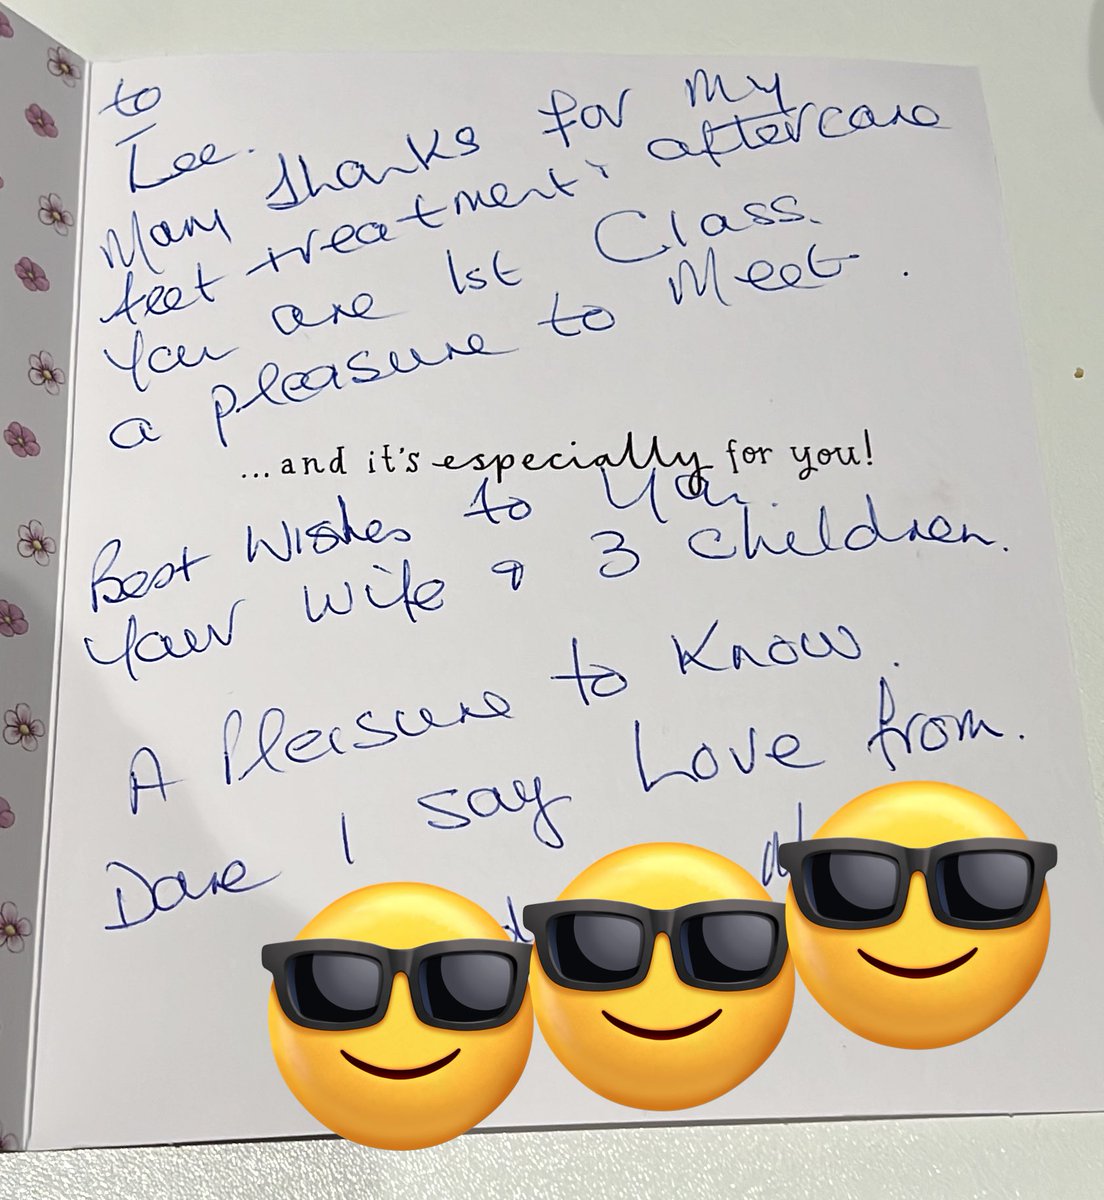 to
Lee.
Many thanks for my
feet treatment & aftercare
You are 1st Class.
a pleasure to Meet.
...and it's especially for you!
Best Wishes to You.
Your Wife & 3 Children.
A Pleasure to Know.
Dare I say Love from.